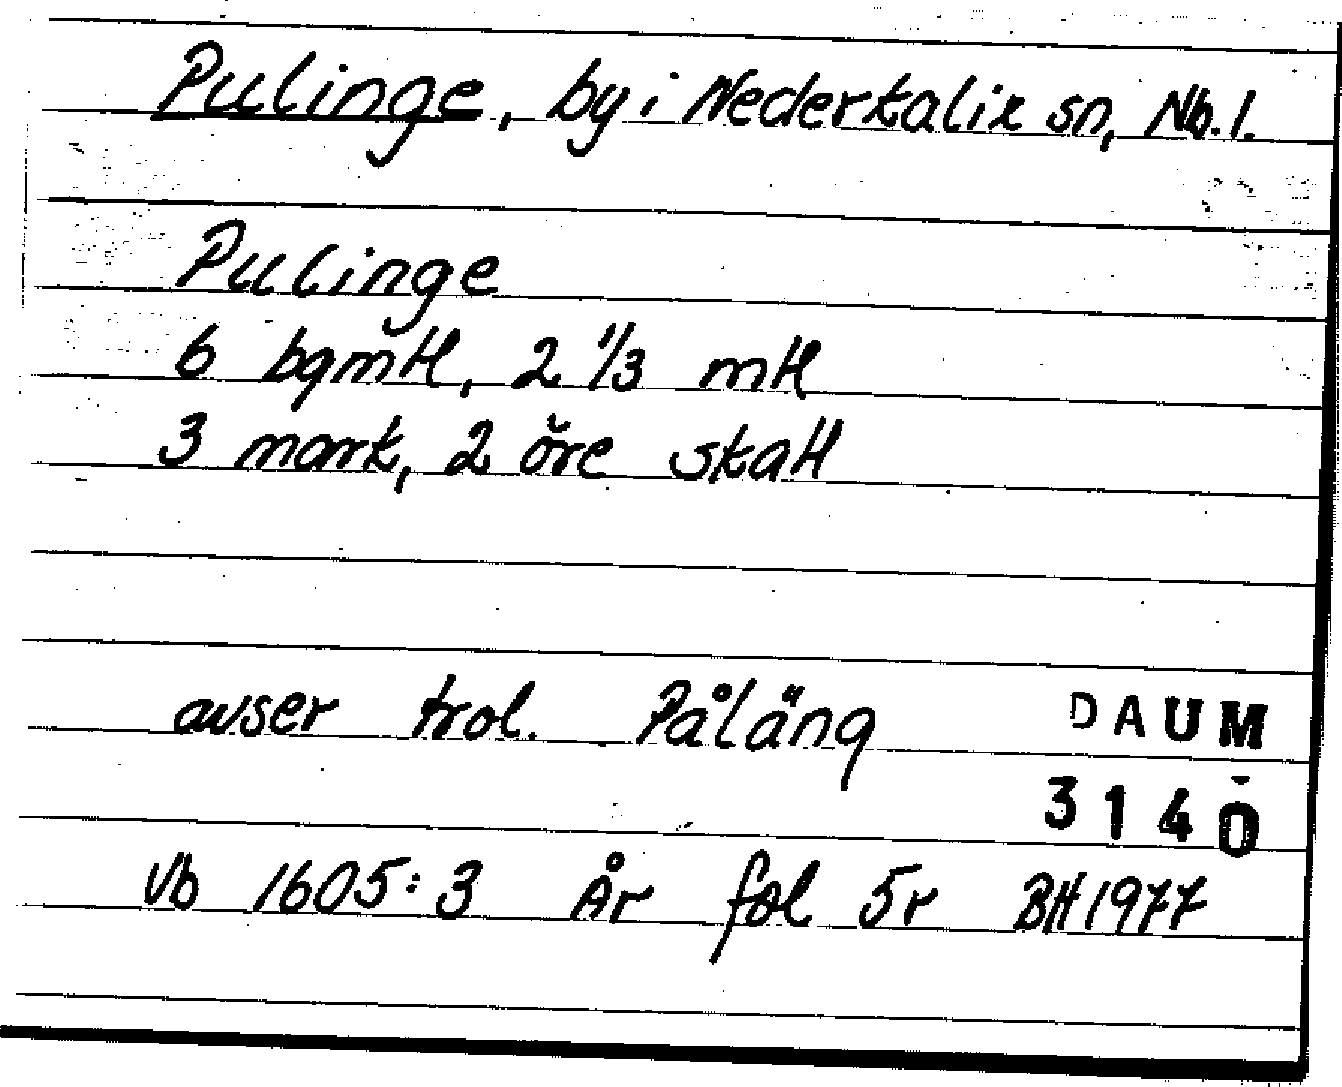 Pulinge, by i Nederkalix sn, Nb. l.
Pulinge
6 bgmtl, 2 1/3 mtl
3 mark, 2 öre skatt
avser trol. Påläng
DAUM
3140
Vb 1605:3 År fol 5r BH 1977